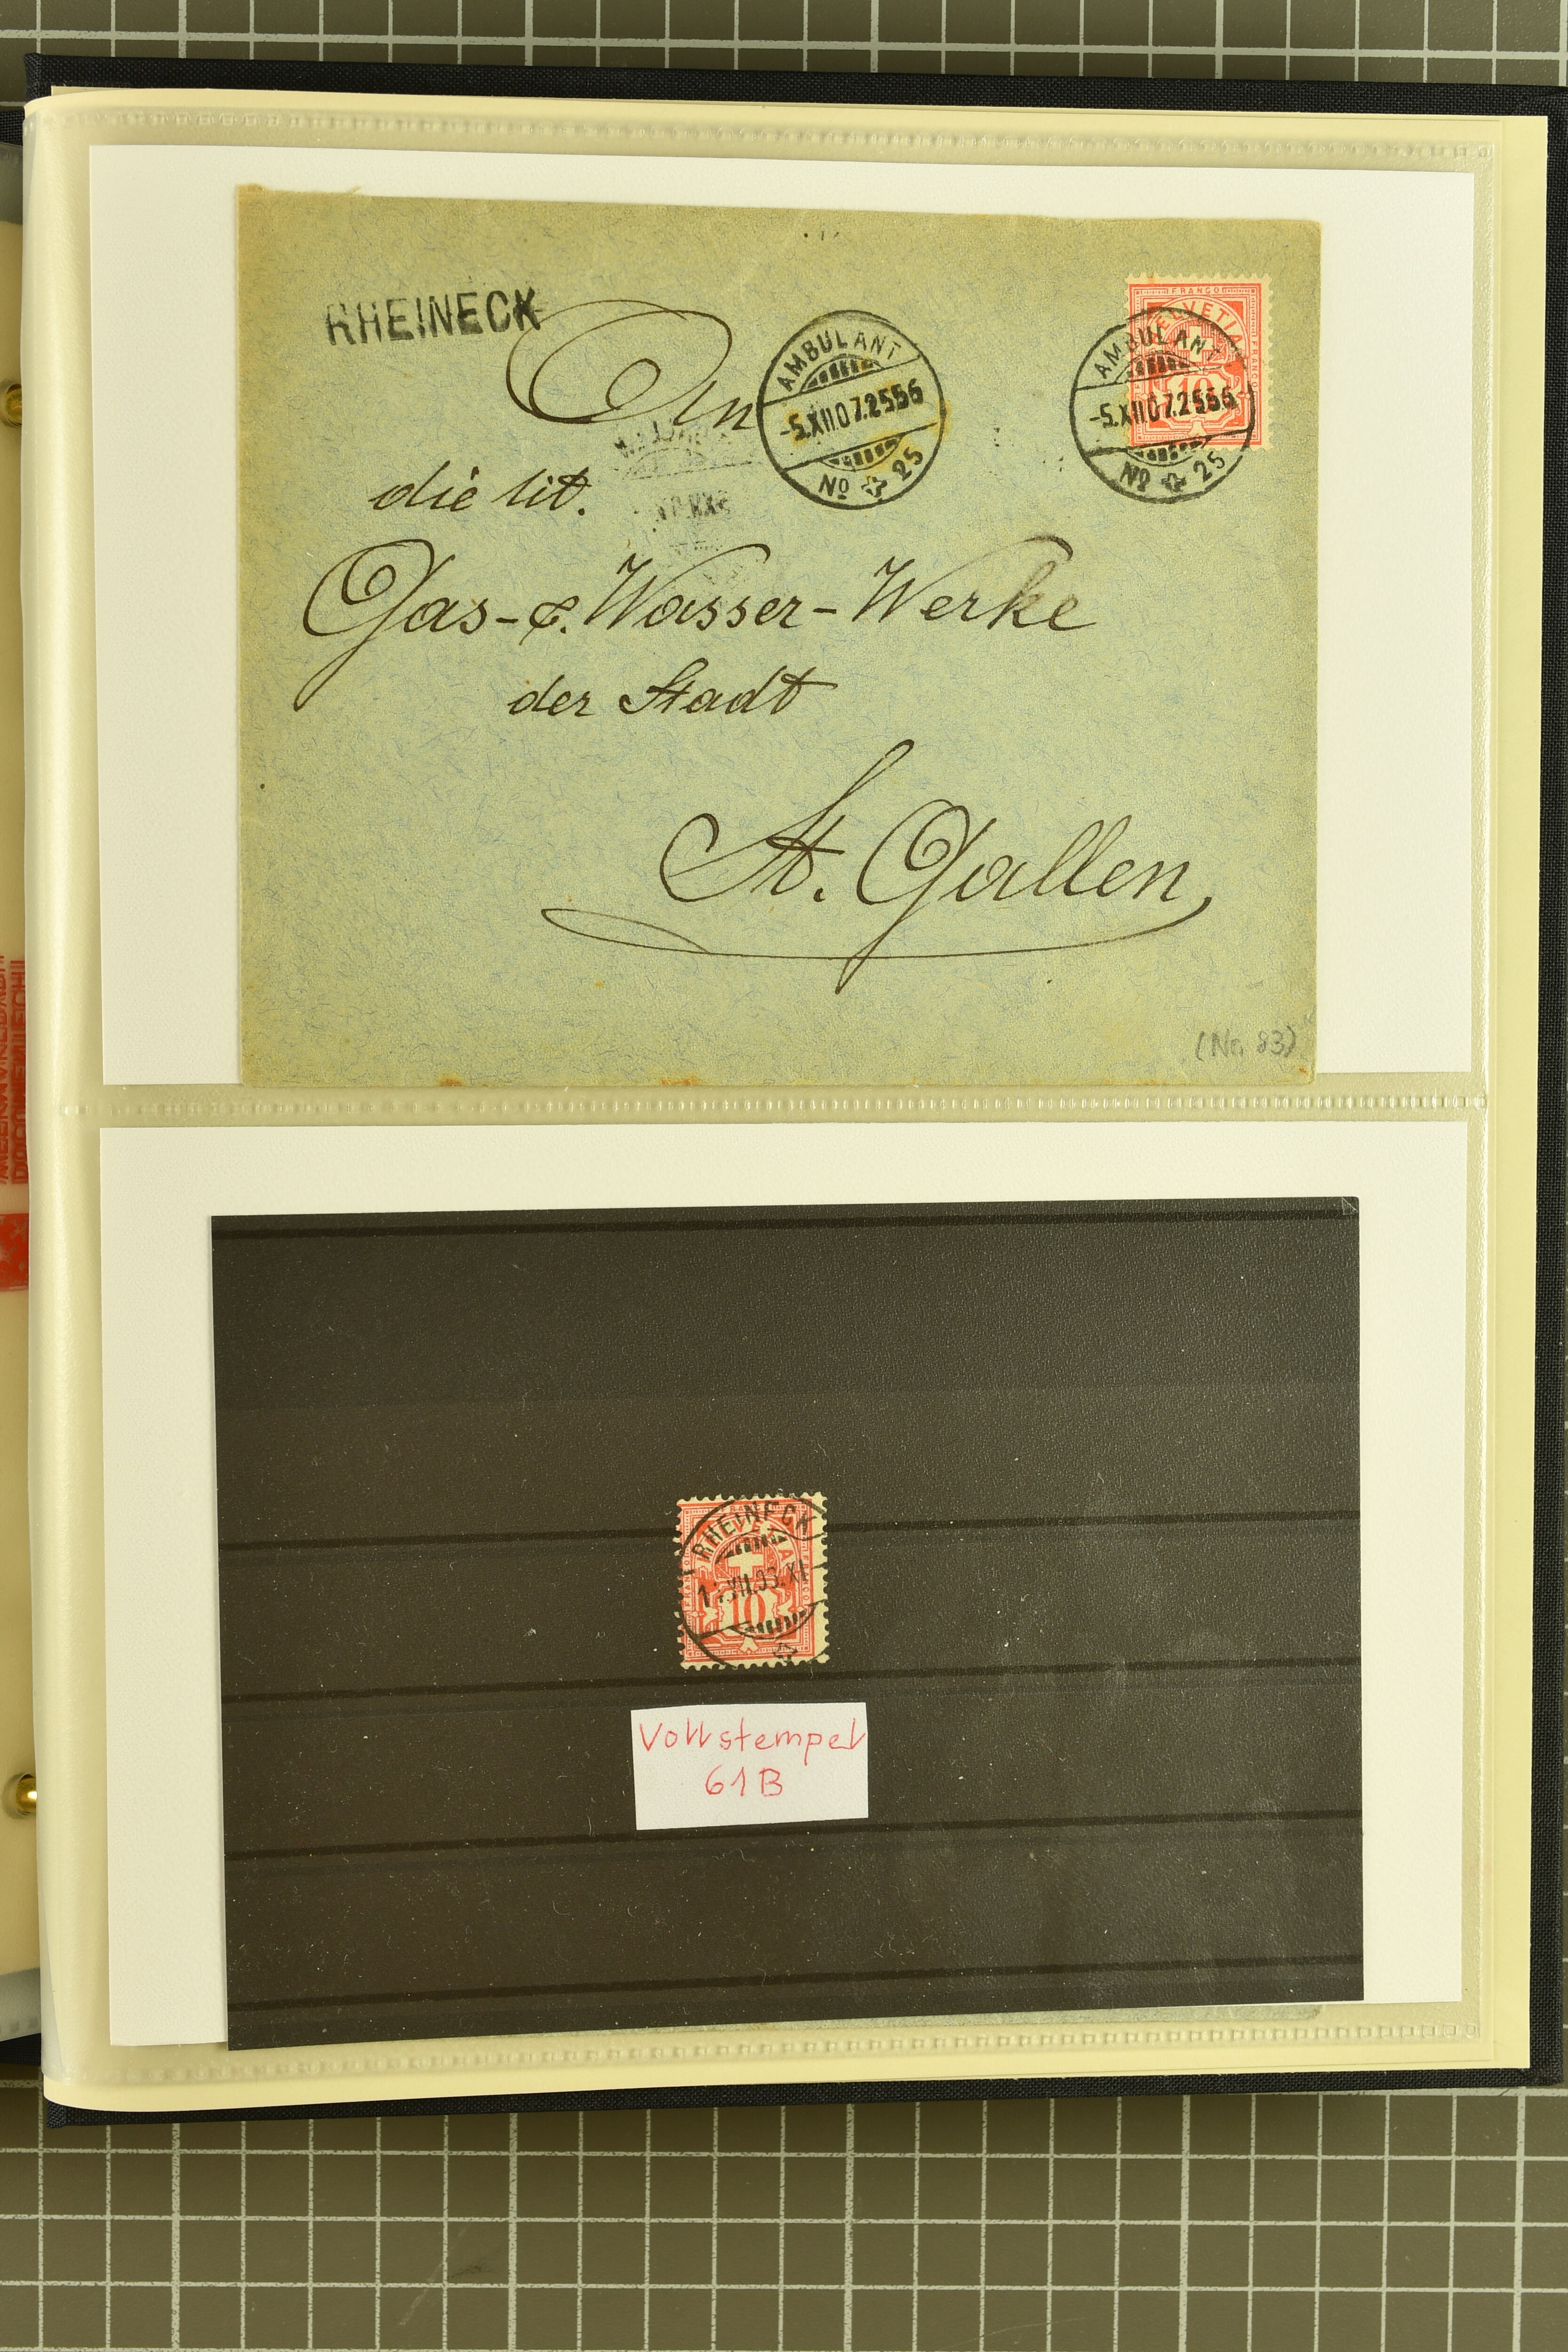 RHEINECK
An
AMBULANT
-5.XII.07.2556
No 25
FRANCO
HELVETIA
FRANCO
10
AMBULANT
-5.XII.07.2556
No 25
die tit.
Gas- & Wasser-Werke
der Stadt
St. Gallen
(No. 83)
RHEINECK
10
Vollstempel
61B